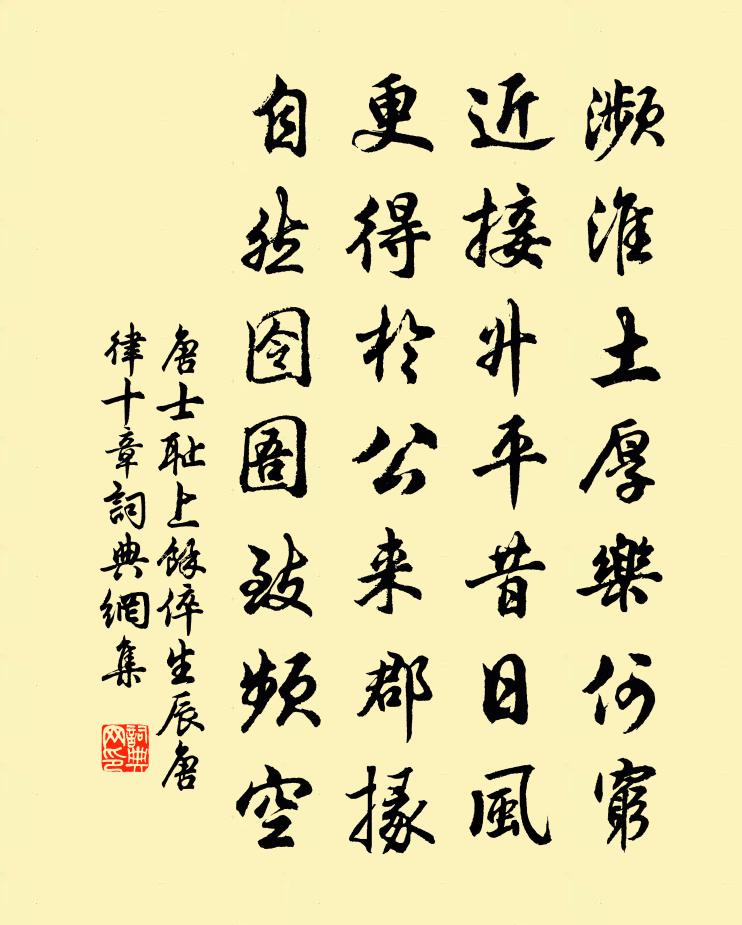 濒淮土厚樂何窮
近接升平昔日風
更得於公来郡掾
自然囹圄致頻空
唐士耻上餘倅生辰唐
律十章詞典網集
詞典网印